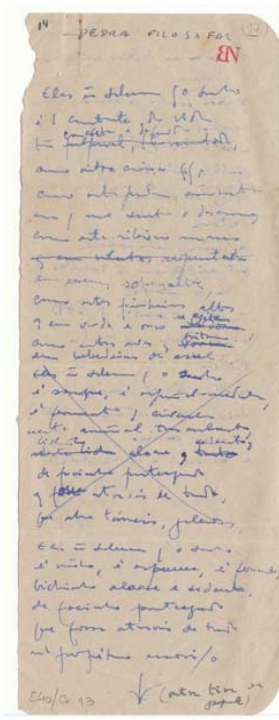 14 PEDRA FILOSOFAL
BN
Eles ñ sabem q o sonho
é 1 constante da vida
tão concreta e definida
como outra coisa qq,
como esta pedra cinzenta
em q me sento e descanso
como este ribeiro manso
em serenos sobressaltos
como estes pinheiros altos
q em verde e ouro se agitam
como estas aves q
em bebedeiras de azul
Eles ñ sabem q o sonho
é
é fermento,
bichinho álacre e sedento,
de focinho pontiagudo
q fossa através de tudo,
Eles ñ sabem q o sonho
é vinho, é espuma, é fermento
bichinho alacre e sedento
de focinho pontiagudo
que fossa através de tudo
em perpétuo movim/o
(outra tira de papel)
E40/Cx. 13